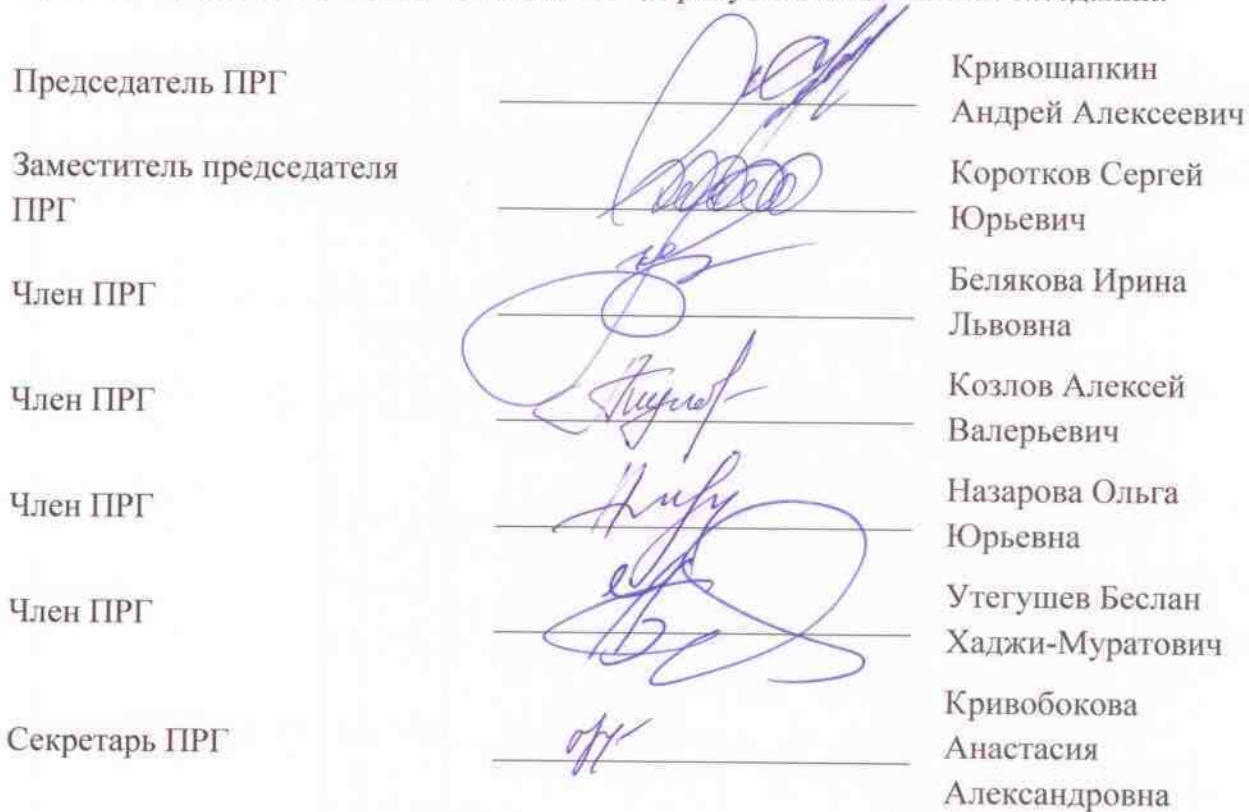 Председатель ПРГ
Кривошапкин
Андрей Алексеевич
Заместитель председателя
ПРГ
Коротков Сергей
Юрьевич
Член ПРГ
Белякова Ирина
Львовна
Член ПРГ
Козлов Алексей
Валерьевич
Член ПРГ
Назарова Ольга
Юрьевна
Член ПРГ
Утегушев Беслан
Хаджи-Муратович
Секретарь ПРГ
Кривобокова
Анастасия
Александровна